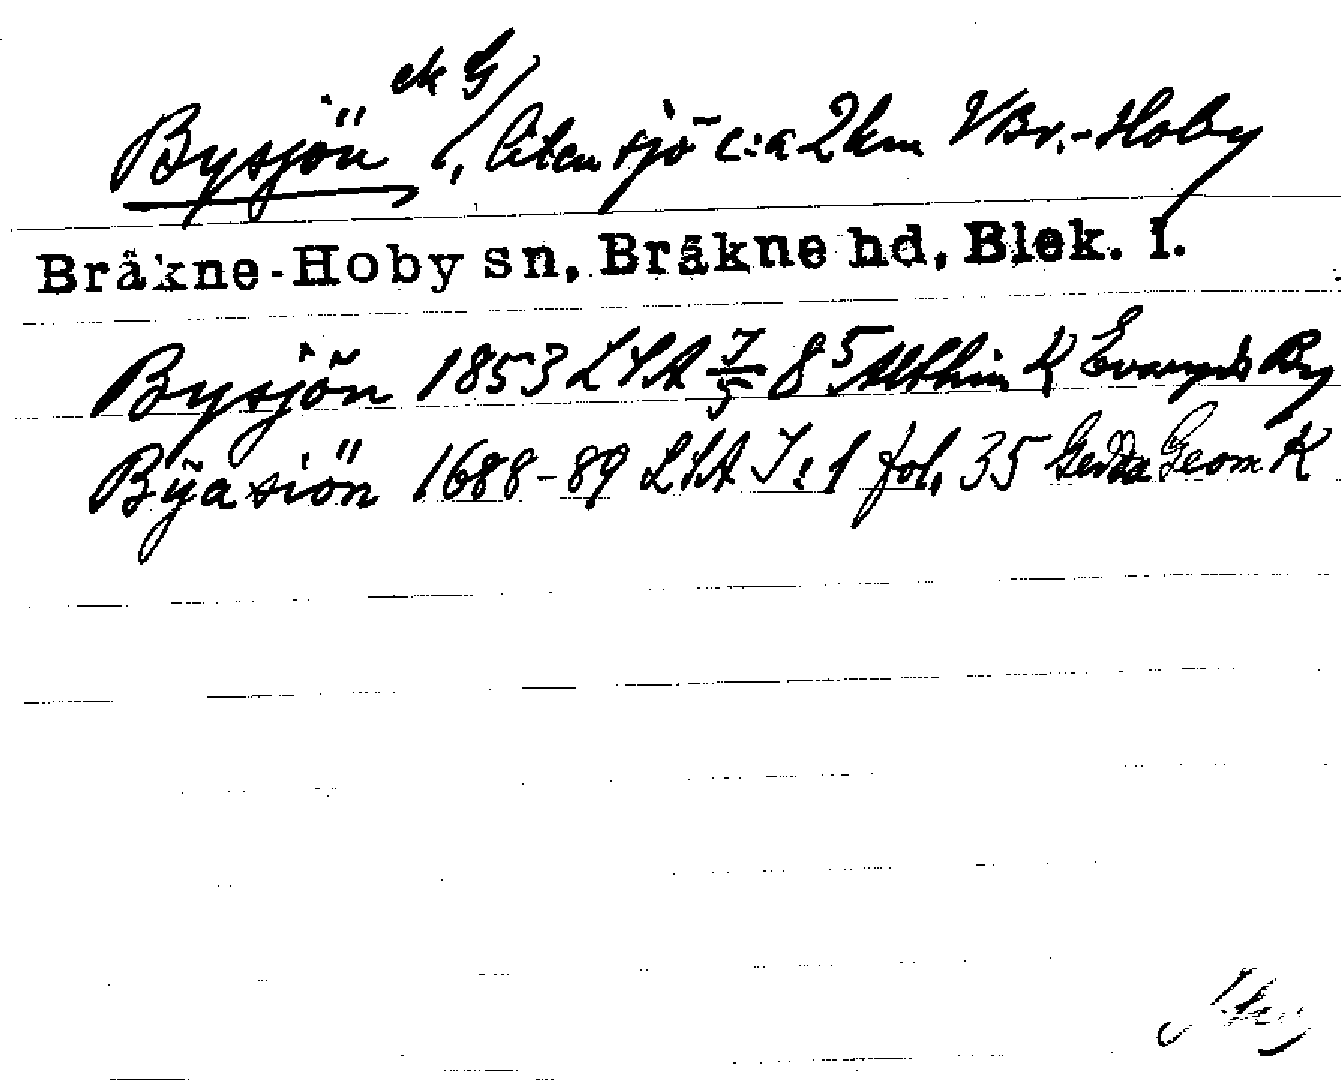 ek G
Bysjön, liten sjö c:a 2 km V Br.-Hoby
Bräkne-Hoby sn, Bräkne hd, Blek. l.
Bysjön 1853 LSA 7/5 85 Althin K
Byasiön 1688-89 LSA J:1 fol. 35 Gedda Geom K